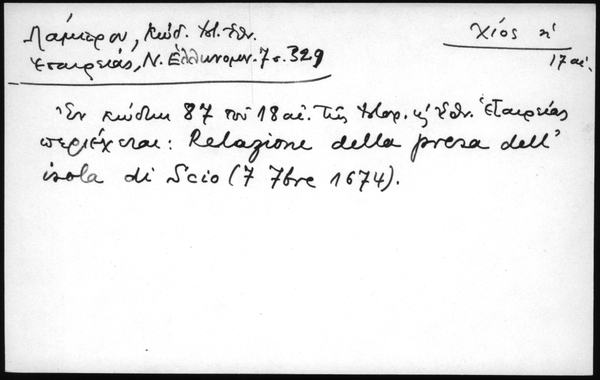 Λάμπρου, Κώδ. Ιστ. Εθν.
Εταιρείας, Ν. Ἑλληνομν. 7 σ. 329
Χίος κ'
17 αἰ.
Ἐν κώδικι 87 τοῦ 18 αἰ. τῆς Ἱστορ. κ' Ἐθν. Ἑταιρείας
περιέχεται: Relazione della presa dell'
isola di Scio (7 7bre 1674).